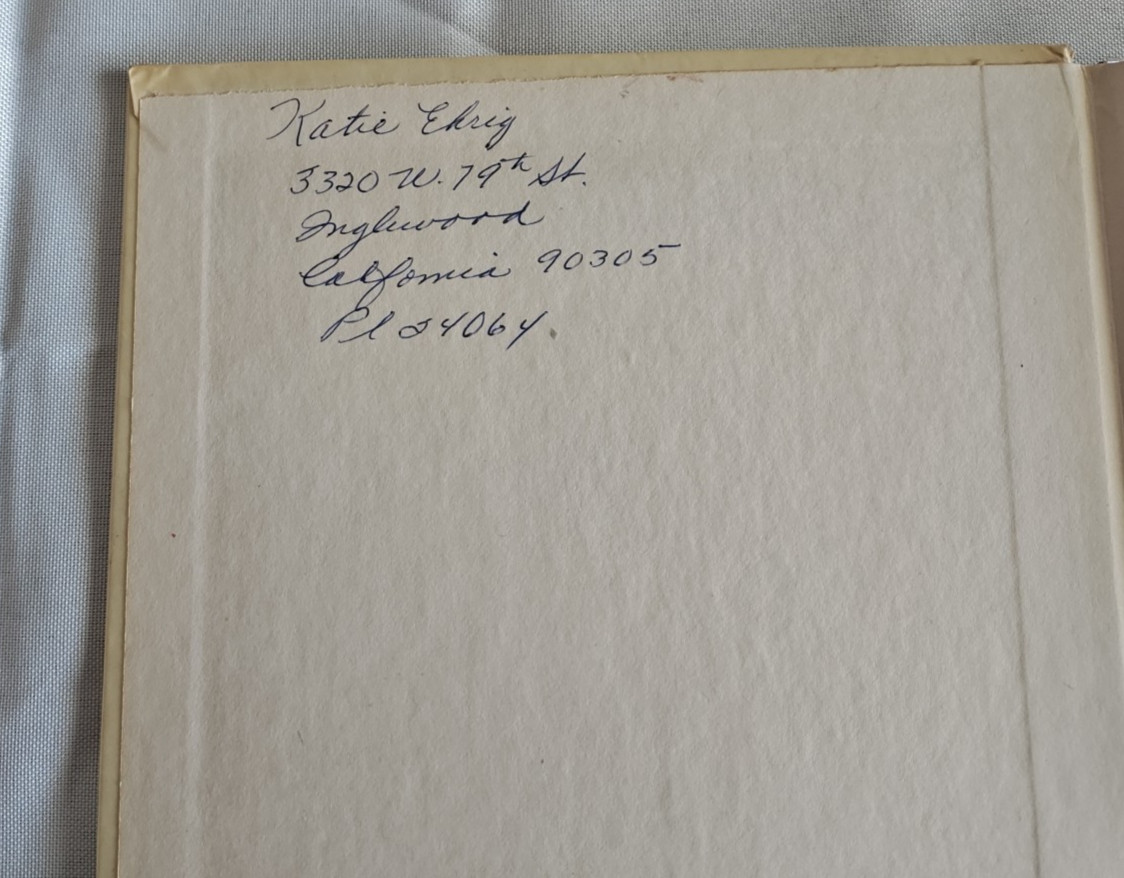 Katie Ehrig
3320 W. 79th St.
Inglewood
California 90305
Pl 24064